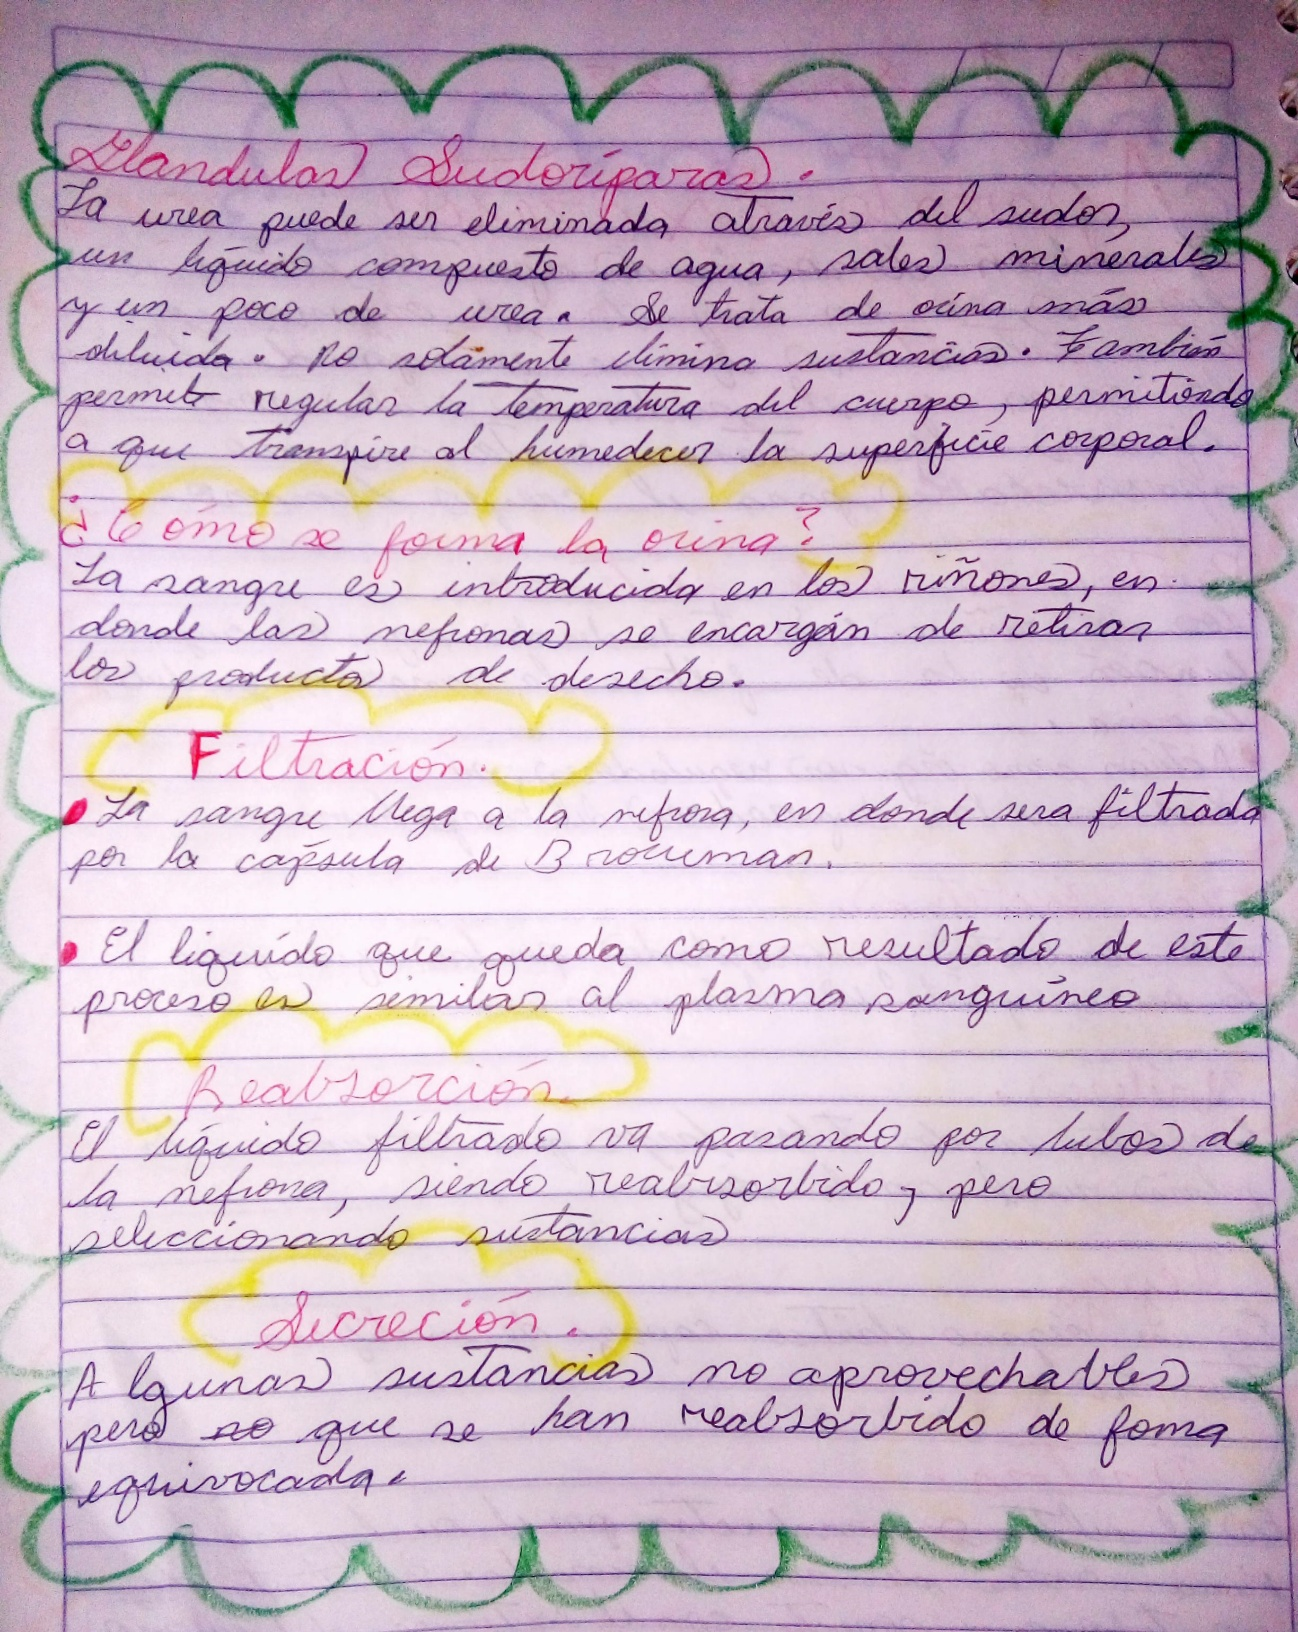 Glandulas Sudoríparas.
La urea puede ser eliminada através del sudor,
un líquido compuesto de agua, sales minerales
y un poco de urea. Se trata de orina más
diluida. no solamente elimina sustancias. También
permite regular la temperatura del cuerpo, permitiendo
a que transpire al humedecer la superficie corporal.
¿Cómo se forma la orina?
La sangre es introducida en los riñones, en
donde las nefronas se encargán de retirar
los productos de desecho.
Filtración.
• La sangre llega a la nefrona, en donde sera filtrada
por la capsula de Browman.
• El liquído que queda como resultado de este
proceso es similar al plasma sanguíneo
Reabsorción.
El líquido filtrado va pasando por tubos de
la nefrona, siendo reabsorbido, pero
seleccionando sustancias
Secreción.
Algunas sustancias no aprovechables
pero que se han reabsorbido de foma
equivocada.